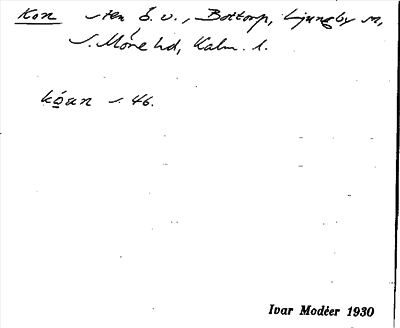 Kon sten S.V., Bottorp, Ljungby sn,
S. Möre hd, Kalm. l.
kóan s. 46.
Ivar Modéer 1930